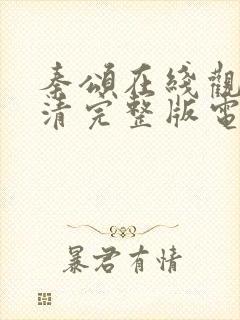 秦頌在綫觀
清完整版電
暴君有情